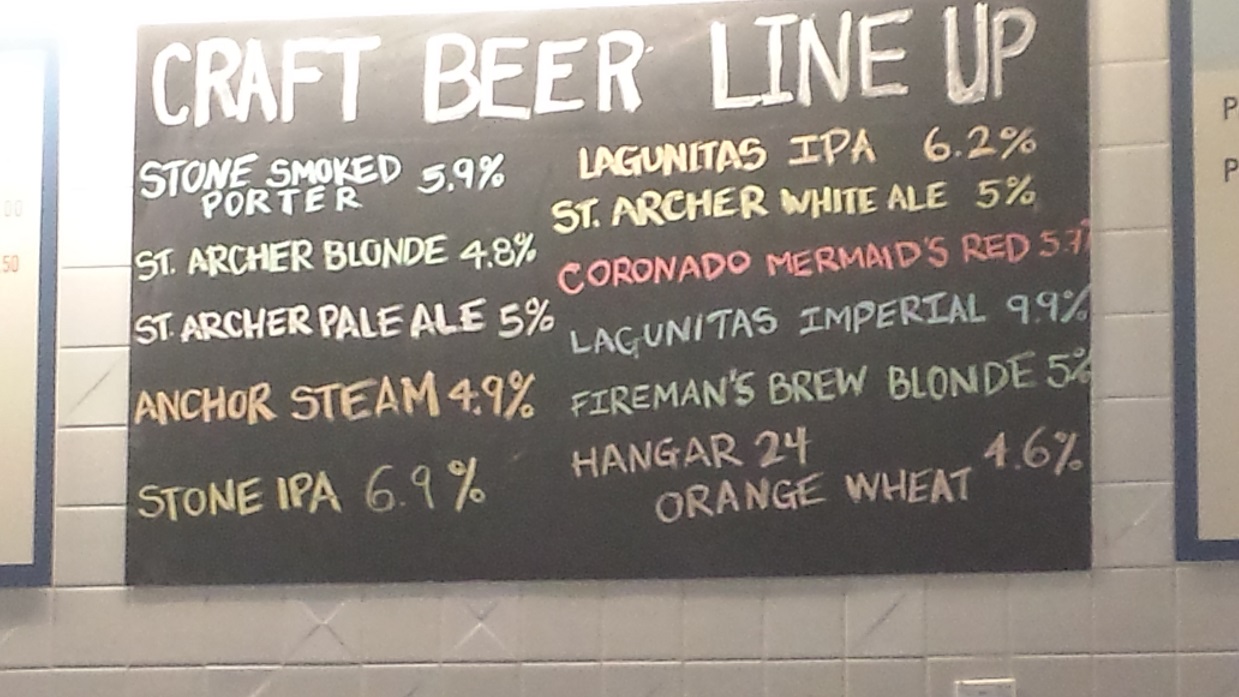 CRAFT BEER LINE UP
STONE SMOKED 5.9%
PORTER
ST. ARCHER BLONDE 4.8%
ST. ARCHER PALE ALE 5%
ANCHOR STEAM 4.9%
STONE IPA 6.9%
LAGUNITAS IPA 6.2%
ST. ARCHER WHITE ALE 5%
CORONADO MERMAID'S RED 5.7%
LAGUNITAS IMPERIAL 9.9%
FIREMAN'S BREW BLONDE 5%
HANGAR 24 4.6%
ORANGE WHEAT
50
P
P